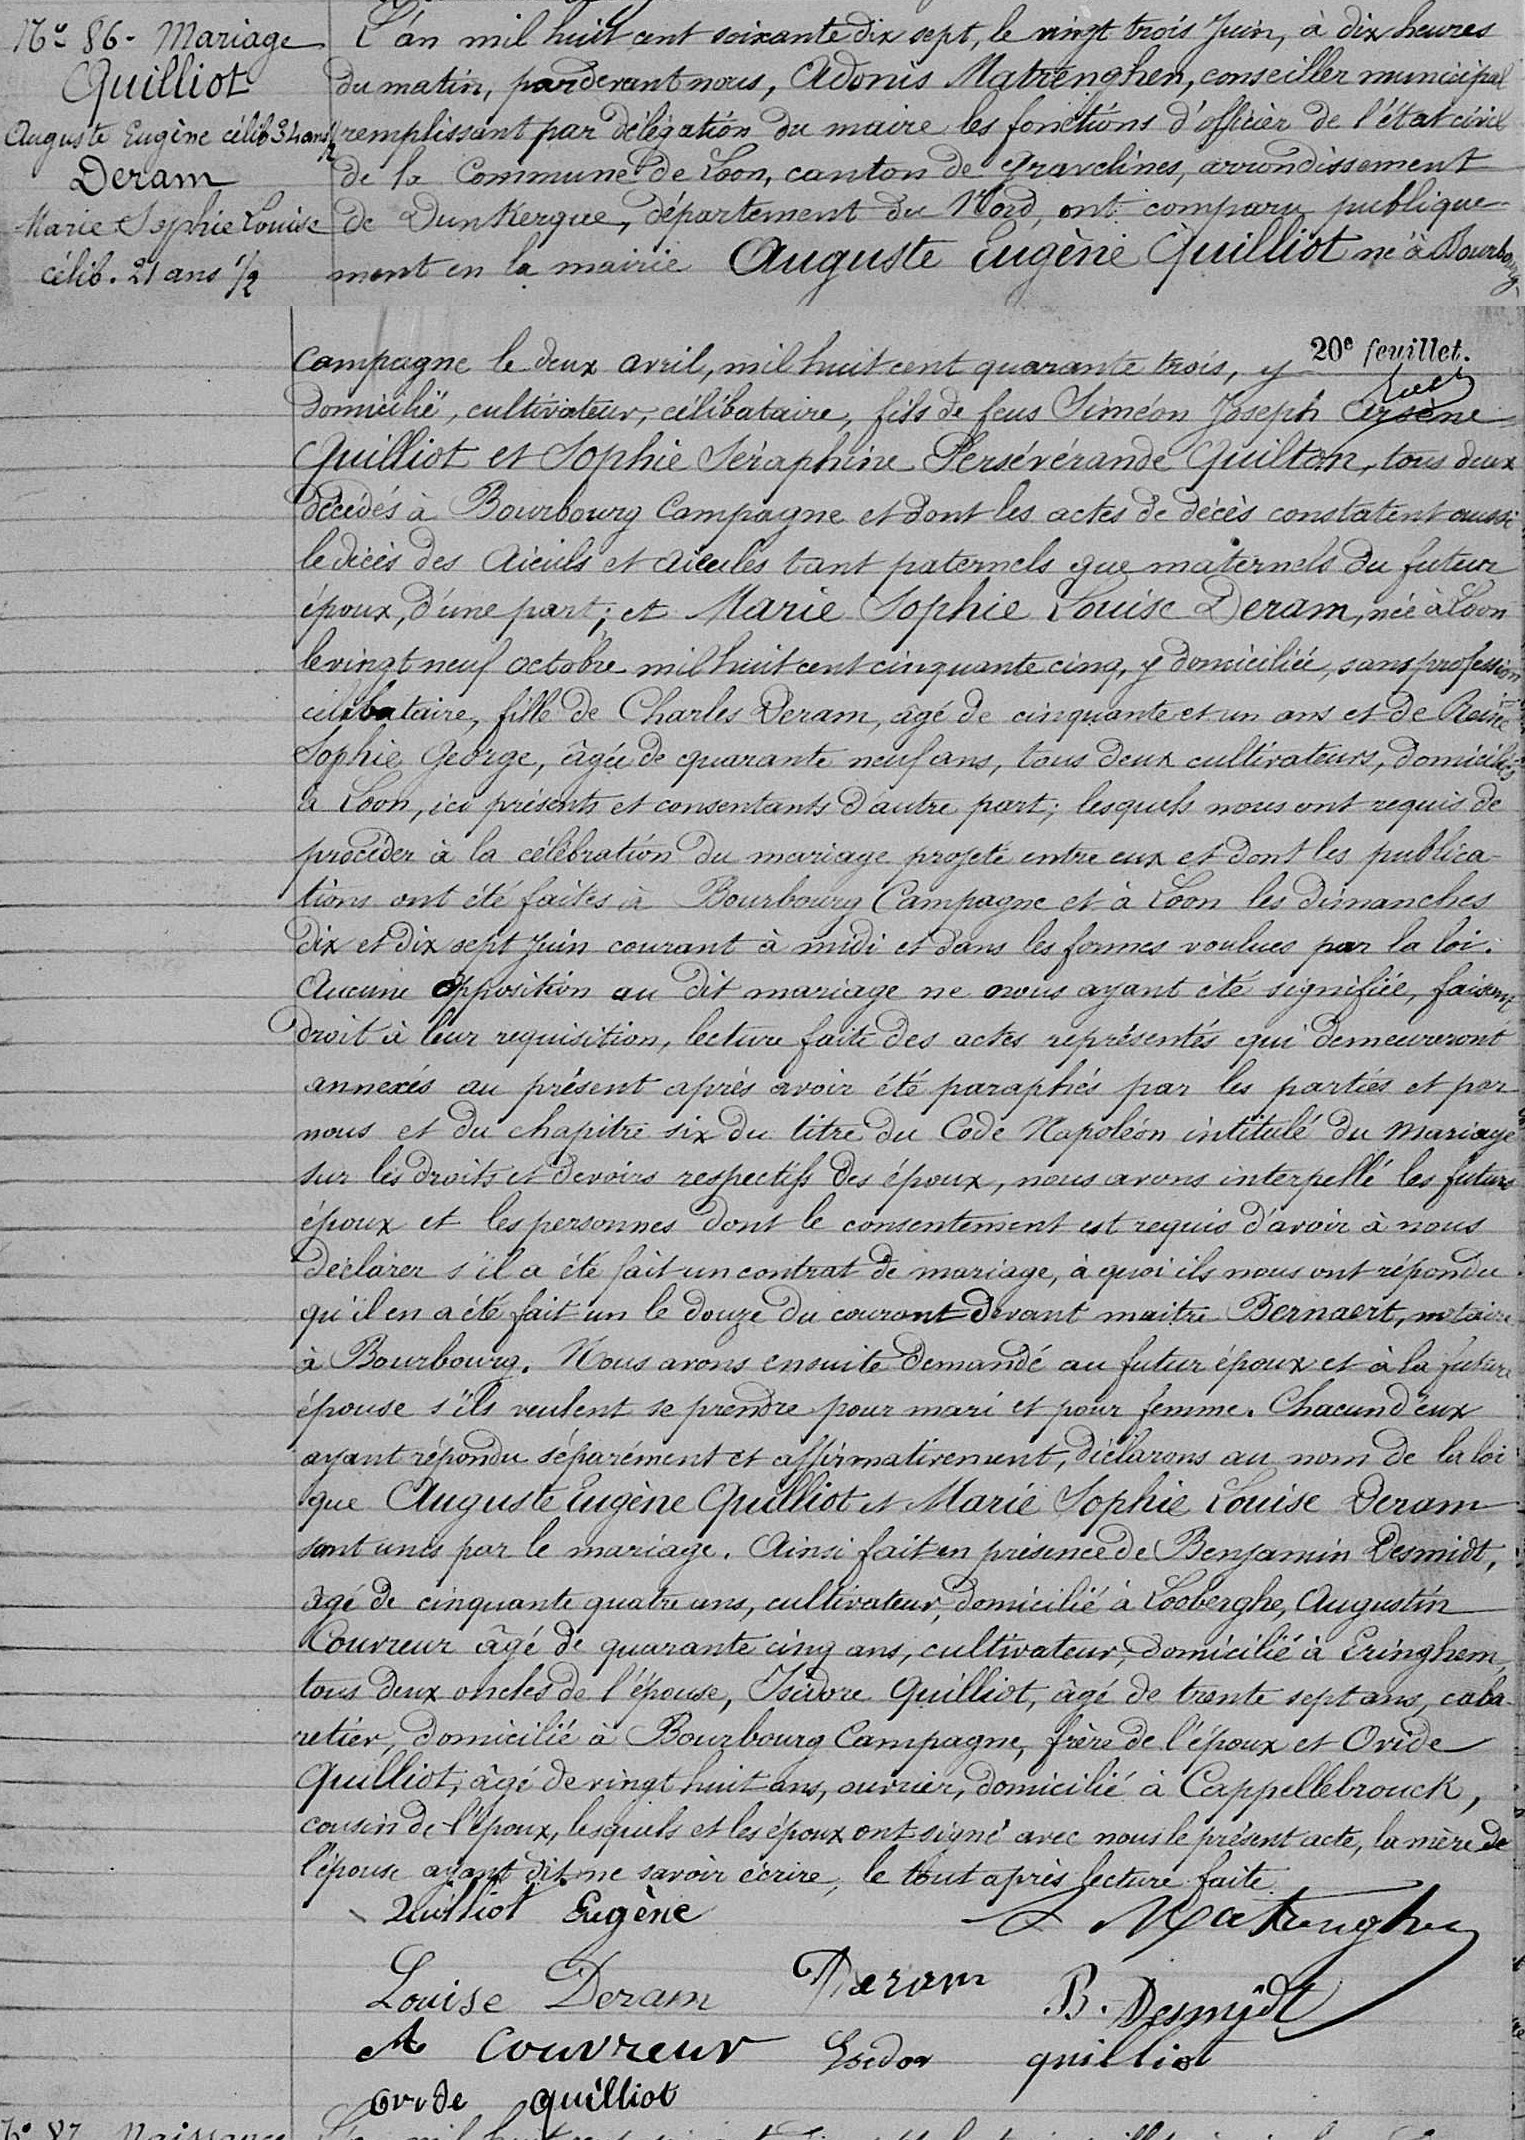 No 86 - Mariage
Quilliot
Auguste Eugène célib 34 ans 1/2
Deram
Marie Sophie Louise
célib. 21 ans 1/2
L'an mil huit cent soixante dix sept, le vingt trois Juin, à dix heures
du matin, pardevant nous, Adonis Matrenghen, conseiller municipal
remplissant par délégation du maire les fonctions d'officier de l'état civil
de la Commune de Loon, canton de Gravelines, arrondissement
de Dunkerque, département du Nord, ont comparu publique-
ment en la mairie Auguste Eugène Quilliot né à Bourbourg
20e feuillet.
Campagne le deux avril, mil huit cent quarante trois, y
domicilié, cultivateur, célibataire, fils de feus Siméon Joseph Arsène
Quilliot et Sophie Séraphine Persévérande Quilton, tous deux
décédés à Bourbourg Campagne et dont les actes de décès constatent aussi
le décès des aïeuls et aïeules tant paternels que maternels du futur
époux, d'une part; et Marie Sophie Louise Deram, née à Loon
le vingt neuf octobre mil huit cent cinquante cinq, y domiciliée, sans profession
célibataire, fille de Charles Deram, âgé de cinquante et un ans et de Reine
Sophie George, âgée de quarante neuf ans, tous deux cultivateurs, domiciliés
à Loon, ici présents et consentants d'autre part; lesquels nous ont requis de
procéder à la célébration du mariage projeté entre eux et dont les publica-
tions ont été faites à Bourbourg Campagne et à Loon les dimanches
dix et dix sept Juin courant à midi et dans les formes voulues par la loi.
Aucune opposition au dit mariage ne nous ayant été signifiée, faisant
droit à leur requisition, lecture faite des actes représentés qui demeureront
annexés au présent après avoir été paraphés par les parties et par
nous et du chapitre six du titre du Code Napoléon intitulé du mariage
sur les droits et devoirs respectifs des époux, nous avons interpellé les futurs
époux et les personnes dont le consentement est requis d'avoir à nous
déclarer s'il a été fait un contrat de mariage, à quoi ils nous ont répondu
qu'il en a été fait un le douze du courant devant maitre Bernaert, notaire
à Bourbourg. Nous avons ensuite demandé au futur époux et à la future
épouse s'ils veulent se prendre pour mari et pour femme. Chacun d'eux
ayant répondu séparément et affirmativement, déclarons au nom de la loi
que Auguste Eugène Quilliot et Marie Sophie Louise Deram
sont unis par le mariage. Ainsi fait en présence de Benjamin Desmidt,
âgé de cinquante quatre ans, cultivateur, domicilié à Looberghe, Augustin
Couvreur âgé de quarante cinq ans, cultivateur, domicilié à Eringhem,
tous deux oncles de l'épouse, Isidore Quilliot, âgé de trente sept ans, caba-
retier, domicilié à Bourbourg Campagne, frère de l'époux et Ovide
Quilliot, âgé de vingt huit ans, ouvrier, domicilié à Cappellebrouck,
cousin de l'époux, lesquels et les époux ont signé avec nous le présent acte, la mère de
l'épouse ayant dit ne savoir écrire, le tout après lecture faite.
Quilliot Eugène
Matrenghen
Louise Deram
Deram
B. Desmidt
A Couvreur
Isidor quilliot
ovide quilliot
No 87 Naissance